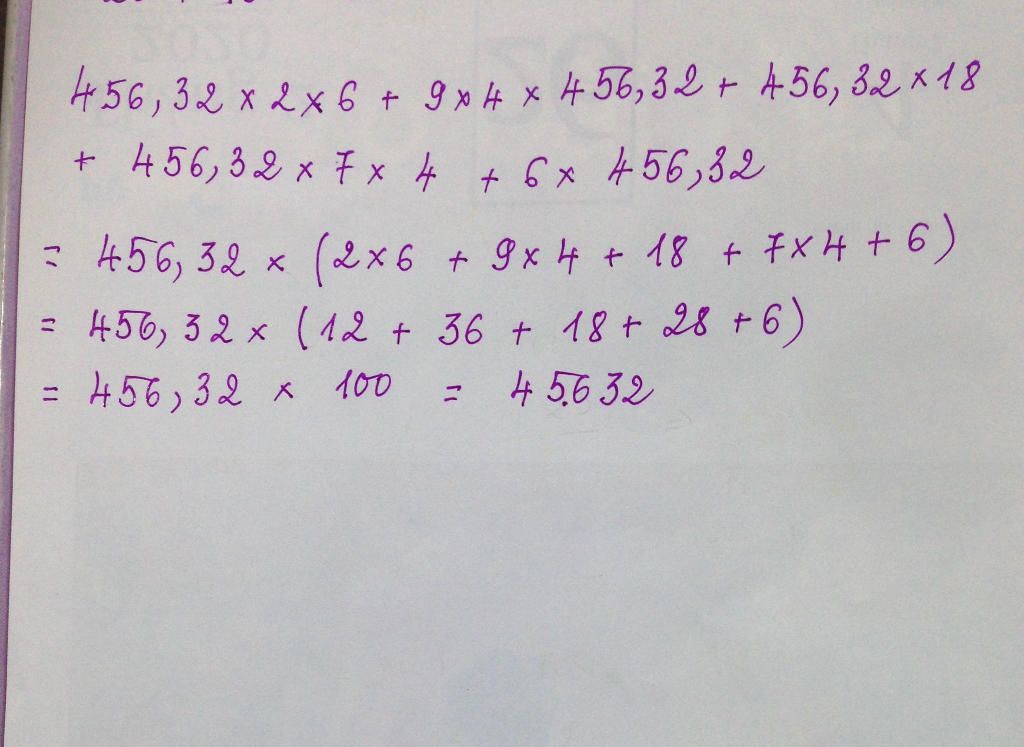 456,32 × 2 × 6 + 9 × 4 × 456,32 + 456,32 × 18
+ 456,32 × 7 × 4 + 6 × 456,32
= 456,32 × (2 × 6 + 9 × 4 + 18 + 7 × 4 + 6)
= 456,32 × (12 + 36 + 18 + 28 + 6)
= 456,32 × 100 = 45.632